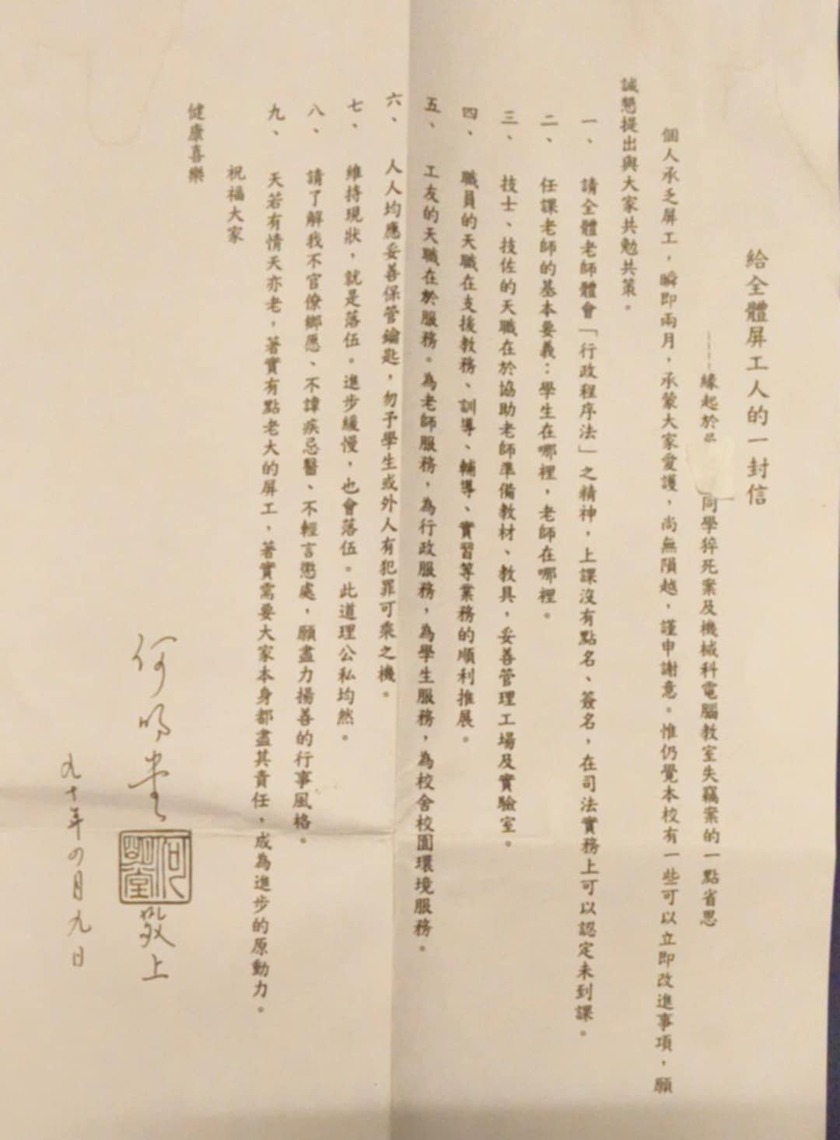 給全體屏工人的一封信
------緣起於 同學猝死案及機械科電腦教室失竊案的一點省思
個人承乏屏工，瞬即兩月，承蒙大家愛護，尚無隕越，謹申謝意。惟仍覺本校有一些可以立即改進事項，願
誠懇提出與大家共勉共策。
一、請全體老師體會「行政程序法」之精神，上課沒有點名、簽名，在司法實務上可以認定未到課。
二、任課老師的基本要義：學生在哪裡，老師在哪裡。
三、技士、技佐的天職在於協助老師準備教材、教具，妥善管理工場及實驗室。
四、職員的天職在支援教務、訓導、輔導、實習等業務的順利推展。
五、工友的天職在於服務。為老師服務，為行政服務，為學生服務，為校舍校園環境服務。
六、人人均應妥善保管鑰匙，勿予學生或外人有犯罪可乘之機。
七、維持現狀，就是落伍。進步緩慢，也會落伍。此道理公私均然。
八、請了解我不官僚鄉愿、不諱疾忌醫、不輕言懲處，願盡力揚善的行事風格。
九、天若有情天亦老，著實有點老大的屏工，著實需要大家本身都盡其責任，成為進步的原動力。
祝福大家
健康喜樂
何明堂 何明堂 敬上
九十年四月九日